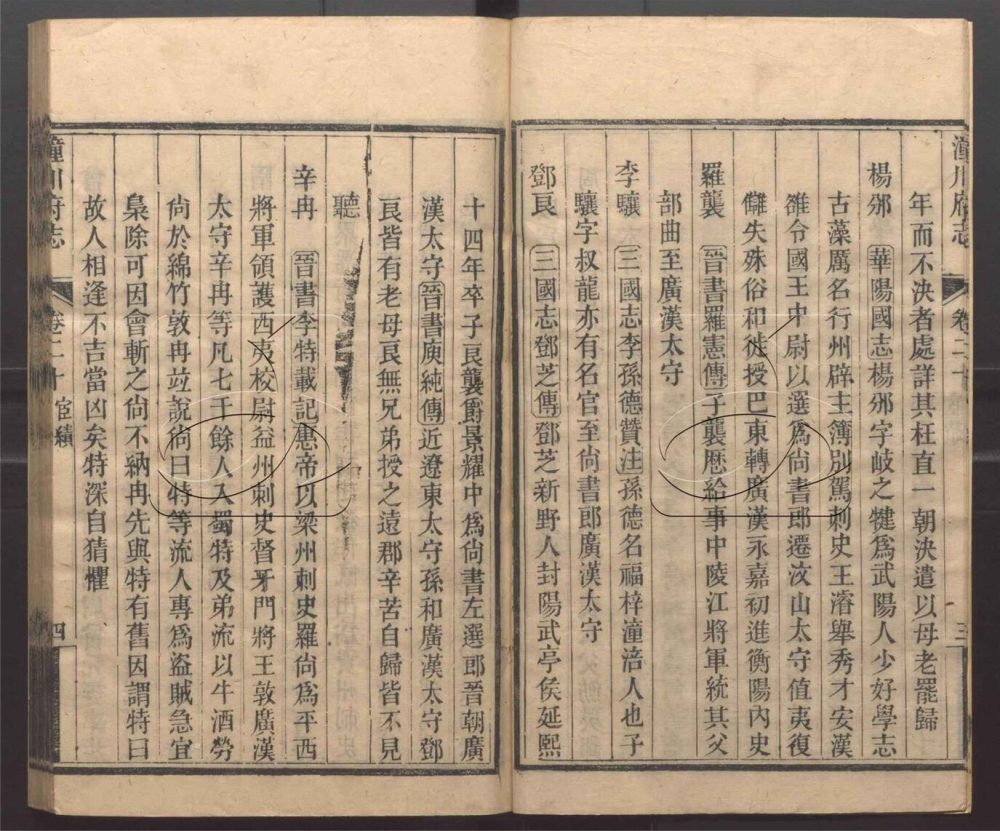 潼川府志 卷二十 三
年而不決者處詳其枉直一朝決遣以母老罷歸
楊邠 華陽國志楊邠字岐之犍為武陽人少好學志
古藻厲名行州辟主簿別駕刺史王濬舉秀才安漢
雒令國王中尉以選爲尚書郎遷汶山太守值夷復
讎失殊俗和徙授巴東轉廣漢永嘉初進衡陽內史
羅襲 晉書羅憲傳子襲歷給事中陵江將軍統其父
部曲至廣漢太守
李驤 三國志李孫德贊注孫德名福梓潼涪人也子
驤字叔龍亦有名官至尚書郎廣漢太守
鄧良 三國志鄧芝傳鄧芝新野人封陽武亭侯延熙
十四年卒子良襲爵景耀中爲尚書左選郎晉朝廣
漢太守晉書庾純傳近遼東太守孫和廣漢太守鄧
良皆有老母良無兄弟授之遠郡辛苦自歸皆不見
聽
辛冉 晉書李特載記惠帝以梁州刺史羅尚爲平西
將軍領護西夷校尉益州刺史督牙門將王敦廣漢
太守辛冉等凡七千餘人入蜀特及弟流以牛酒勞
尚於綿竹敦冉竝說尚曰特等流人專爲盜賊急宜
梟除可因會斬之尚不納冉先與特有舊因謂特曰
故人相逢不吉當凶矣特深自猜懼
潼川府志 卷二十 宦績 四